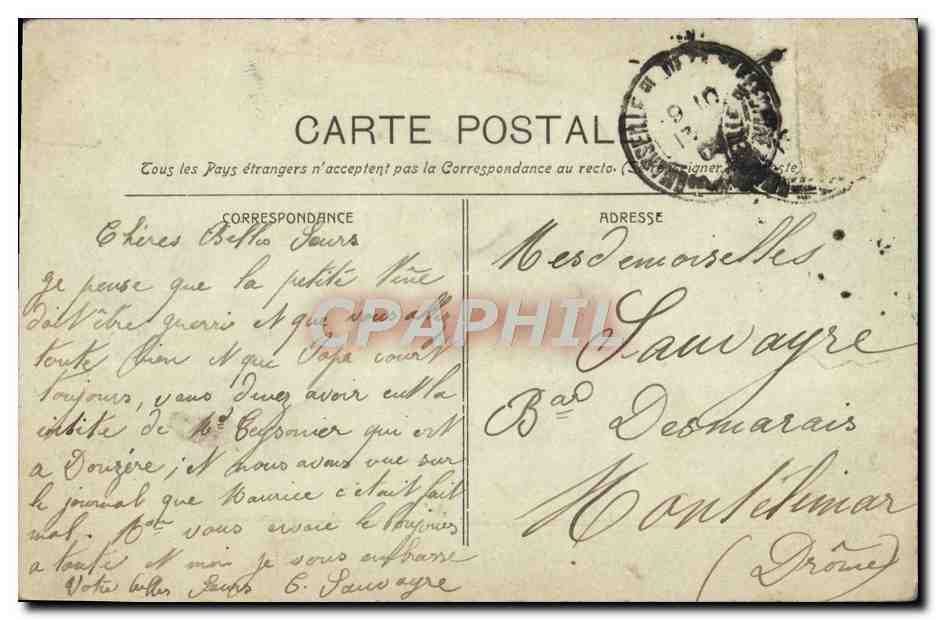 CARTE POSTALE
Tous les Pays étrangers n'acceptent pas la Correspondance au recto. (Se renseigner à la Poste)
MARSEILLE
CORRESPONDANCE
Chères Belles Sœurs
Je pense que la petite
doit être guerri et que vous allez
toute bien et que Papa court
toujours, vous devez avoir eut la
visite de Md qui est
a Donzère; et nous avons vue sur
le journal que Maurice c'était fait
mal. vous le toujours
a toute et moi je vous embrasse
Votre belles Sœurs C. Sauvayre
ADRESSE
Mesdemoiselles
Sauvayre
Bard Desmarais
Montélimar
(Drôme)
CPAPHIL